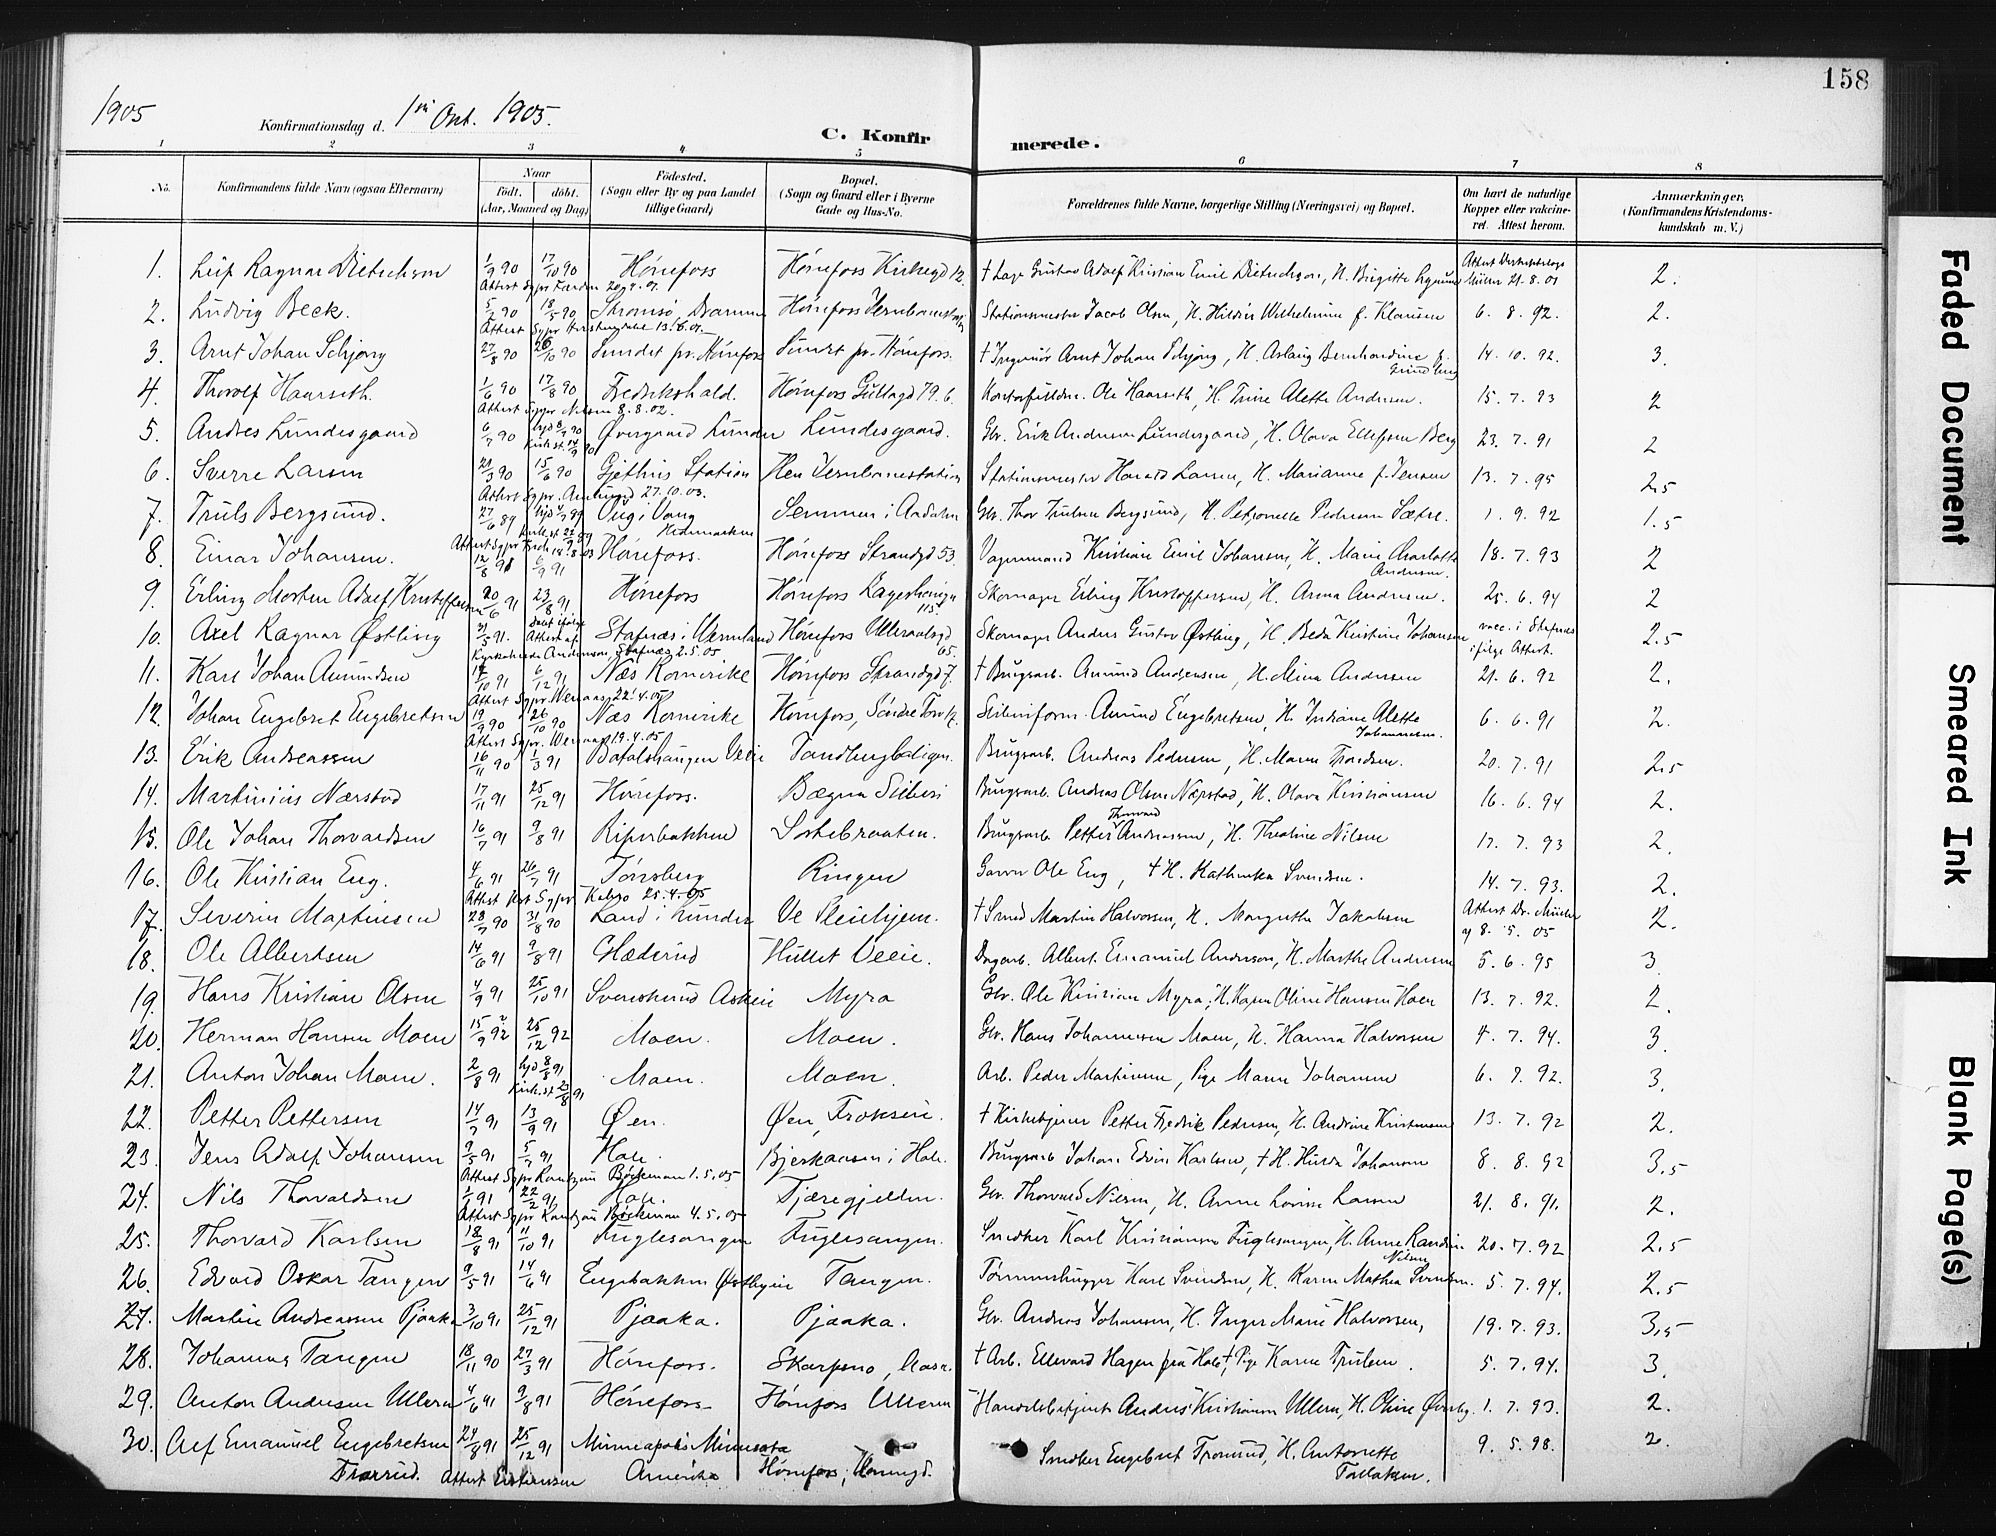 158
1905
Konfirmationsdag d. 1ste Okt. 1905.
C. Konfirmerede.
1 2 3 4 5 6 7 8
No. Konfirmandens fulde Navn (ogsaa Efternavn) Naar født. døbt. (Aar, Maaned og Dag) Fødested. (Sogn eller By og paa Landet tillige Gaard) Bopæl. (Sogn og Gaard eller i Byerne Gade og Hus-No. Forældrenes fulde Navne, borgerlige Stilling (Næringsvei) og Bopæl. Om havt de naturlige Kopper eller vakcineret. Attest herom. Anmærkninger. (Konfirmandens Kristendomskundskab m. V.)
1. Leif Ragnar Dietrichson 1/9 90 17/10 90 Hønefoss Hønefoss Kirkegd 12. † Gustav Adolf Kristian Emil Dietrichson, H. Birgitte 21.8.01 2.
2. Ludvig Beck. 5/2 90 18/5 90 Strømsø, Drammen Hønefoss Stationsmester Jacob Olsen, H. Hilda Wilhelmine f. Klausen 6. 8. 92. 2.
3. Arnt Johan Schjong 27/8 90 26/10 90 Sundet pr. Hønefoss Sundet pr. Hønefoss. † Ingeniør Arnt Johan Schjong, H. Aslaug Bernhardine f. 14. 10. 92. 3.
4. Thorolf Haarseth. 1/6 90 17/8 90 Fredrikshald. Hønefoss 79. 6. Ole Haarseth, H. Trine Alette Andersen. 15. 7. 93 2
Attest Sgpr. Nilsen 8.8.02.
5. Andres Lundesgaard 6/7 90 Øvergaard Lunder Lundesgaard. Gbr. Erik Andersen Lundesgaard, H. Olava Ellefsen Berg 23. 7. 91 2
6. Sverre Larsen 21/3 90 15/6 90 Gjethus Station Hen Jernbanestation Stationsmester Harald Larsen, H. Marianne f. Jensen 13. 7. 95 2.5
Attest Sgpr. Amlund 27.10.03.
7. Truls Bergsund. 27/6 89 Vang Hedmarken Semmen i Aadalen Gbr. Thor Trulsen Bergsund, H. Petronelle Pedersen Sætre. 1. 9. 92 1.5
8. Einar Johansen. 12/8 91 6/9 91 Hønefoss. Hønefoss Strandgd 53. Vognmand Kristian Emil Johansen, H. Marie Charlotte Andersen. 18. 7. 93 2
9. Erling Morten Adolf Kristoffersen 20/6 91 23/8 91 Hønefoss Hønefoss 115 Skomager Erling Kristoffersen, H. Anna Andersen. 25. 6. 94 2
10. Axel Ragnar Østling 31/5 91. Attest af Stafnæs i Wermland Hønefoss Ulleraalsgd 65. Skomager Anders Gustav Østling, H. Beda Kristine Johansen vacc. i Stafnæs ifølge Attest. 2.5
Andersson, Stafnæs 2.5.05
11. Karl Johan Amundsen 14/10 91 6/12 91 Næs Romerike Hønefoss Strandgd 7. † Brugsarb. Amund Andersen, H. Mina Andersen 21. 6. 92 2.
Attest Sgpr. 22.4.05
12. Johan Engebret Engebretsen 19/9 90 26/10 90 Næs Romerike Hønefoss, Søndre Torv Amund Engebretsen, H. Alette Johannesen. 6. 6. 91 2.
Attest Sgpr. 19.4.05
13. Erik Andreassen 16/11 90 1/3 91 Bataldshaugen Veien Tandbergboligen. Brugsarb. Andreas Pedersen, H. Maren Trondsen. 20. 7. 91 2.5
14. Martinius Nærstad 17/11 91 25/12 91 Hønefoss. Bægna Sliberi Brugsarb. Andreas Olsen Næpstad, H. Olava Kristiansen 16. 6. 94 2.
15. Ole Johan Thorvardsen 16/7 91 9/8 91 Riperbakken Sortebraaten. Brugsarb. Petter Thorvard Andreassen, H. Theoline Nilsen 17. 7. 93 2.
16. Ole Kristian Eng. 4/6 91 26/7 91 Tønsberg Ringen Garver Ole Eng, † H. Kathinka Svendsen. 14. 7. 93. 2.
17. Severin Martinsen 28/7 90 31/8 90 Land i Lunder Ve † Smed Martin Halvorsen, H. Margrethe Jakobsen Attest Dr. Müller af 8. 5. 05 2.
18. Ole Albertsen 14/6 91 9/8 91 Glæserud Hullet Veien. Dagarb. Albert Emanuel Anderson, H. Marthe Andersen 5. 6. 95 3
19. Hans Kristian Olsen 4/9 91 25/10 91 Svenskerud Askeie Myra Gbr. Ole Kristian Myra, H. Karen Oline Hansen Hoen 13. 7. 92. 2.
20. Herman Hansen Moen 15/9 92 25/12 92 Moen. Moen. Gbr. Hans Johannesen Moen, H. Hanna Halvorsen 4. 7. 94. 3.
21. Anton Johan Moen. 2/8 91 hjd 8/8 91 Kirk.st 23/8 91 Moen. Moen. Arb. Peder Martinsen, Pige Maren Johansen 6. 7. 92. 3.
22. Petter Pettersen 14/7 91 13/9 91 Øen. Øen, † Kirketjener Petter Fredrik Pedersen, H. Andrine Kristensen 13. 7. 92 2.
23. Jens Adolf Johansen 9/5 91 5/7 91 Hole. Bjerkaasen i Hole. Brugsarb. Johan Edvin Karlsen, † H. Hulda Johansen 8. 8. 92 3.5
24. Nils Thorvaldsen 1/1 91 22/2 91 Hole. Tjæregjellen. Gbr. Thorvald Nilsen, H. Anne Lovise Larsen 21. 8. 91. 2.
25. Thorvard Karlsen 18/8 91 11/10 91 Fuglesangen Fuglesangen. Snedker Karl Kristiansen Fuglesangen, H. Anne Randine Nilsen 20. 7. 92 2.5
26. Edvard Oskar Tangen 9/5 91 14/6 91 Engebakken Tangen. Tømmerhugger Karl Svendsen, H. Karen Mathea Svendsen. 5. 7. 94. 2.5
27. Martin Andreassen Pjaaka 3/10 91 25/12 91 Pjaaka. Pjaaka. Gbr. Andreas Johansen, H. Inger Marie Halvorsen, 19. 7. 93. 3,5
28. Johannes Tangen 18/11 90 27/3 91 Hønefoss. Skarpsno, † Arb. Ellevard Hagen fra Hole, † Pige Karen Trulsen. 5. 7. 94. 3.
29. Anton Andersen Ullern 4/6 91 9/8 91 Hønefoss. Hønefoss Ullern Handelsbetjent Anders Kristiansen Ullern, H. Oline Øverby. 1. 7. 93. 2.
30. Alf Emanuel Engebretsen 24/8 91 25/12 91 Minneapolis Minnesota Amerika Hønefoss, Snedker Engebret, H. Antonette 9. 5. 98. 2.
Faded Document
Smeared Ink
Blank Page(s)